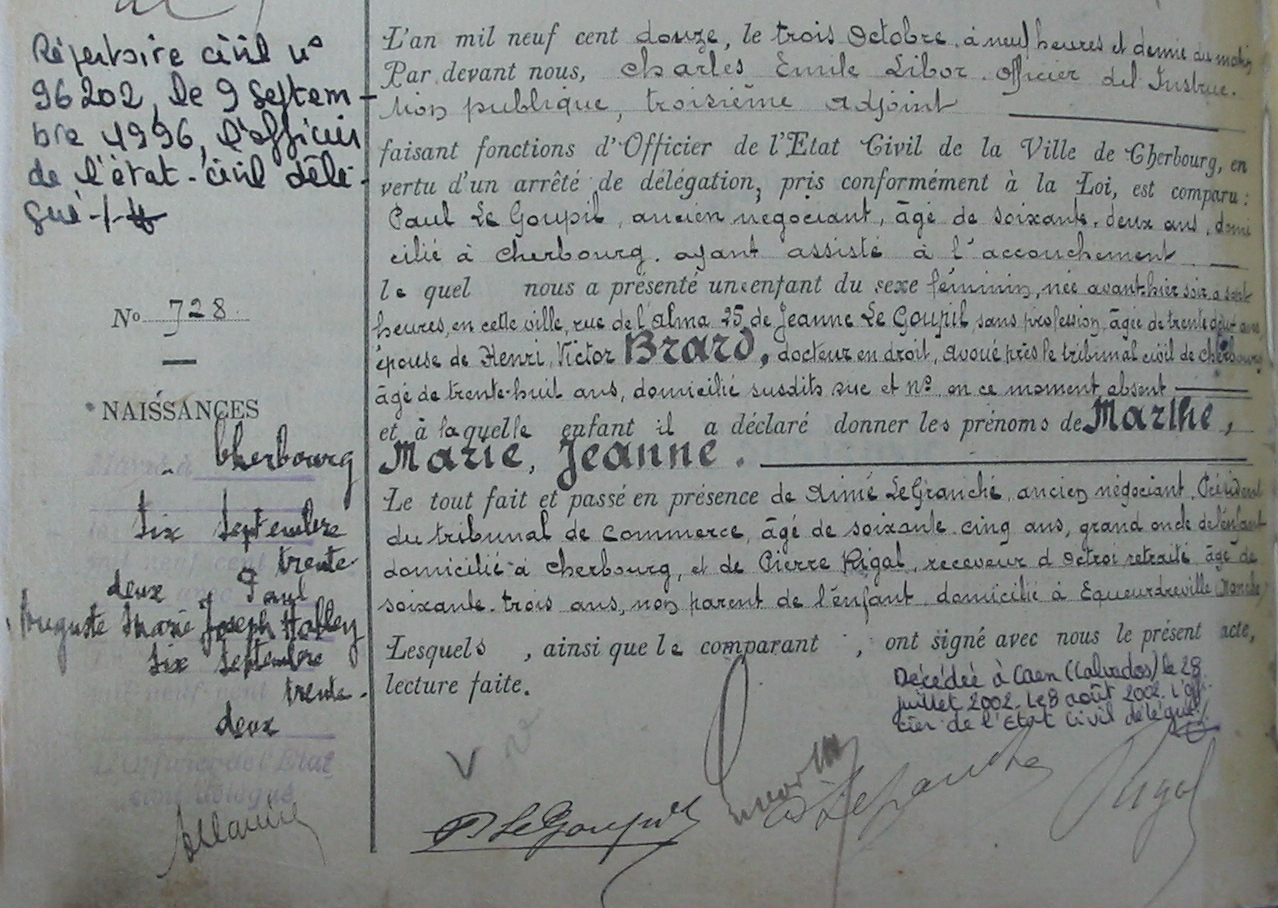 Répertoire civil n°
96202, le 9 Septem-
bre 1996, l'officier
de l'état-civil délé-
gué
No 728
NAISSANCES
Cherbourg
Six Septembre
trente-
deux Paul
Auguste Marie Joseph
Six Septembre
trente-
deux
L'Officier de l'Etat
civil délégué
L'an mil neuf cent douze, le trois Octobre, à neuf heures et demie du matin
Par devant nous, Charles Emile Libor, officier de l'Instruc-
tion publique, troisième adjoint
faisant fonctions d'Officier de l'Etat Civil de la Ville de Cherbourg, en
vertu d'un arrêté de délégation, pris conformément à la Loi, est comparu :
Paul Le Goupil, ancien négociant, âgé de soixante-deux ans, domi
cilié à Cherbourg, ayant assisté à l'accouchement
lequel nous a présenté un enfant du sexe féminin, née avant-hier soir à sept
heures, en cette ville, rue de l'alma 25, de Jeanne Le Goupil, sans profession, âgée de trente ans,
épouse de Henri, Victor Brard, docteur en droit, avoué près le tribunal civil de Cherbourg,
âgé de trente-huit ans, domicilié susdits rue et n°, en ce moment absent
et à laquelle enfant il a déclaré donner les prénoms de Marthe,
Marie, Jeanne.
Le tout fait et passé en présence de Aimé LeGranché, ancien négociant, Président
du tribunal de Commerce, âgé de soixante-cinq ans, grand oncle de l'enfant
domicilié à Cherbourg, et de Pierre Rigal, receveur d'Octroi retraité âgé de
soixante-trois ans, non parent de l'enfant, domicilié à Equeurdreville (Manche)
Lesquels, ainsi que le comparant, ont signé avec nous le présent acte,
lecture faite.
Décédée à Caen (Calvados) le 28
juillet 2002. Le 8 août 2002. L'offi
cier de l'Etat Civil délégué
P. Le Goupil
Rigal